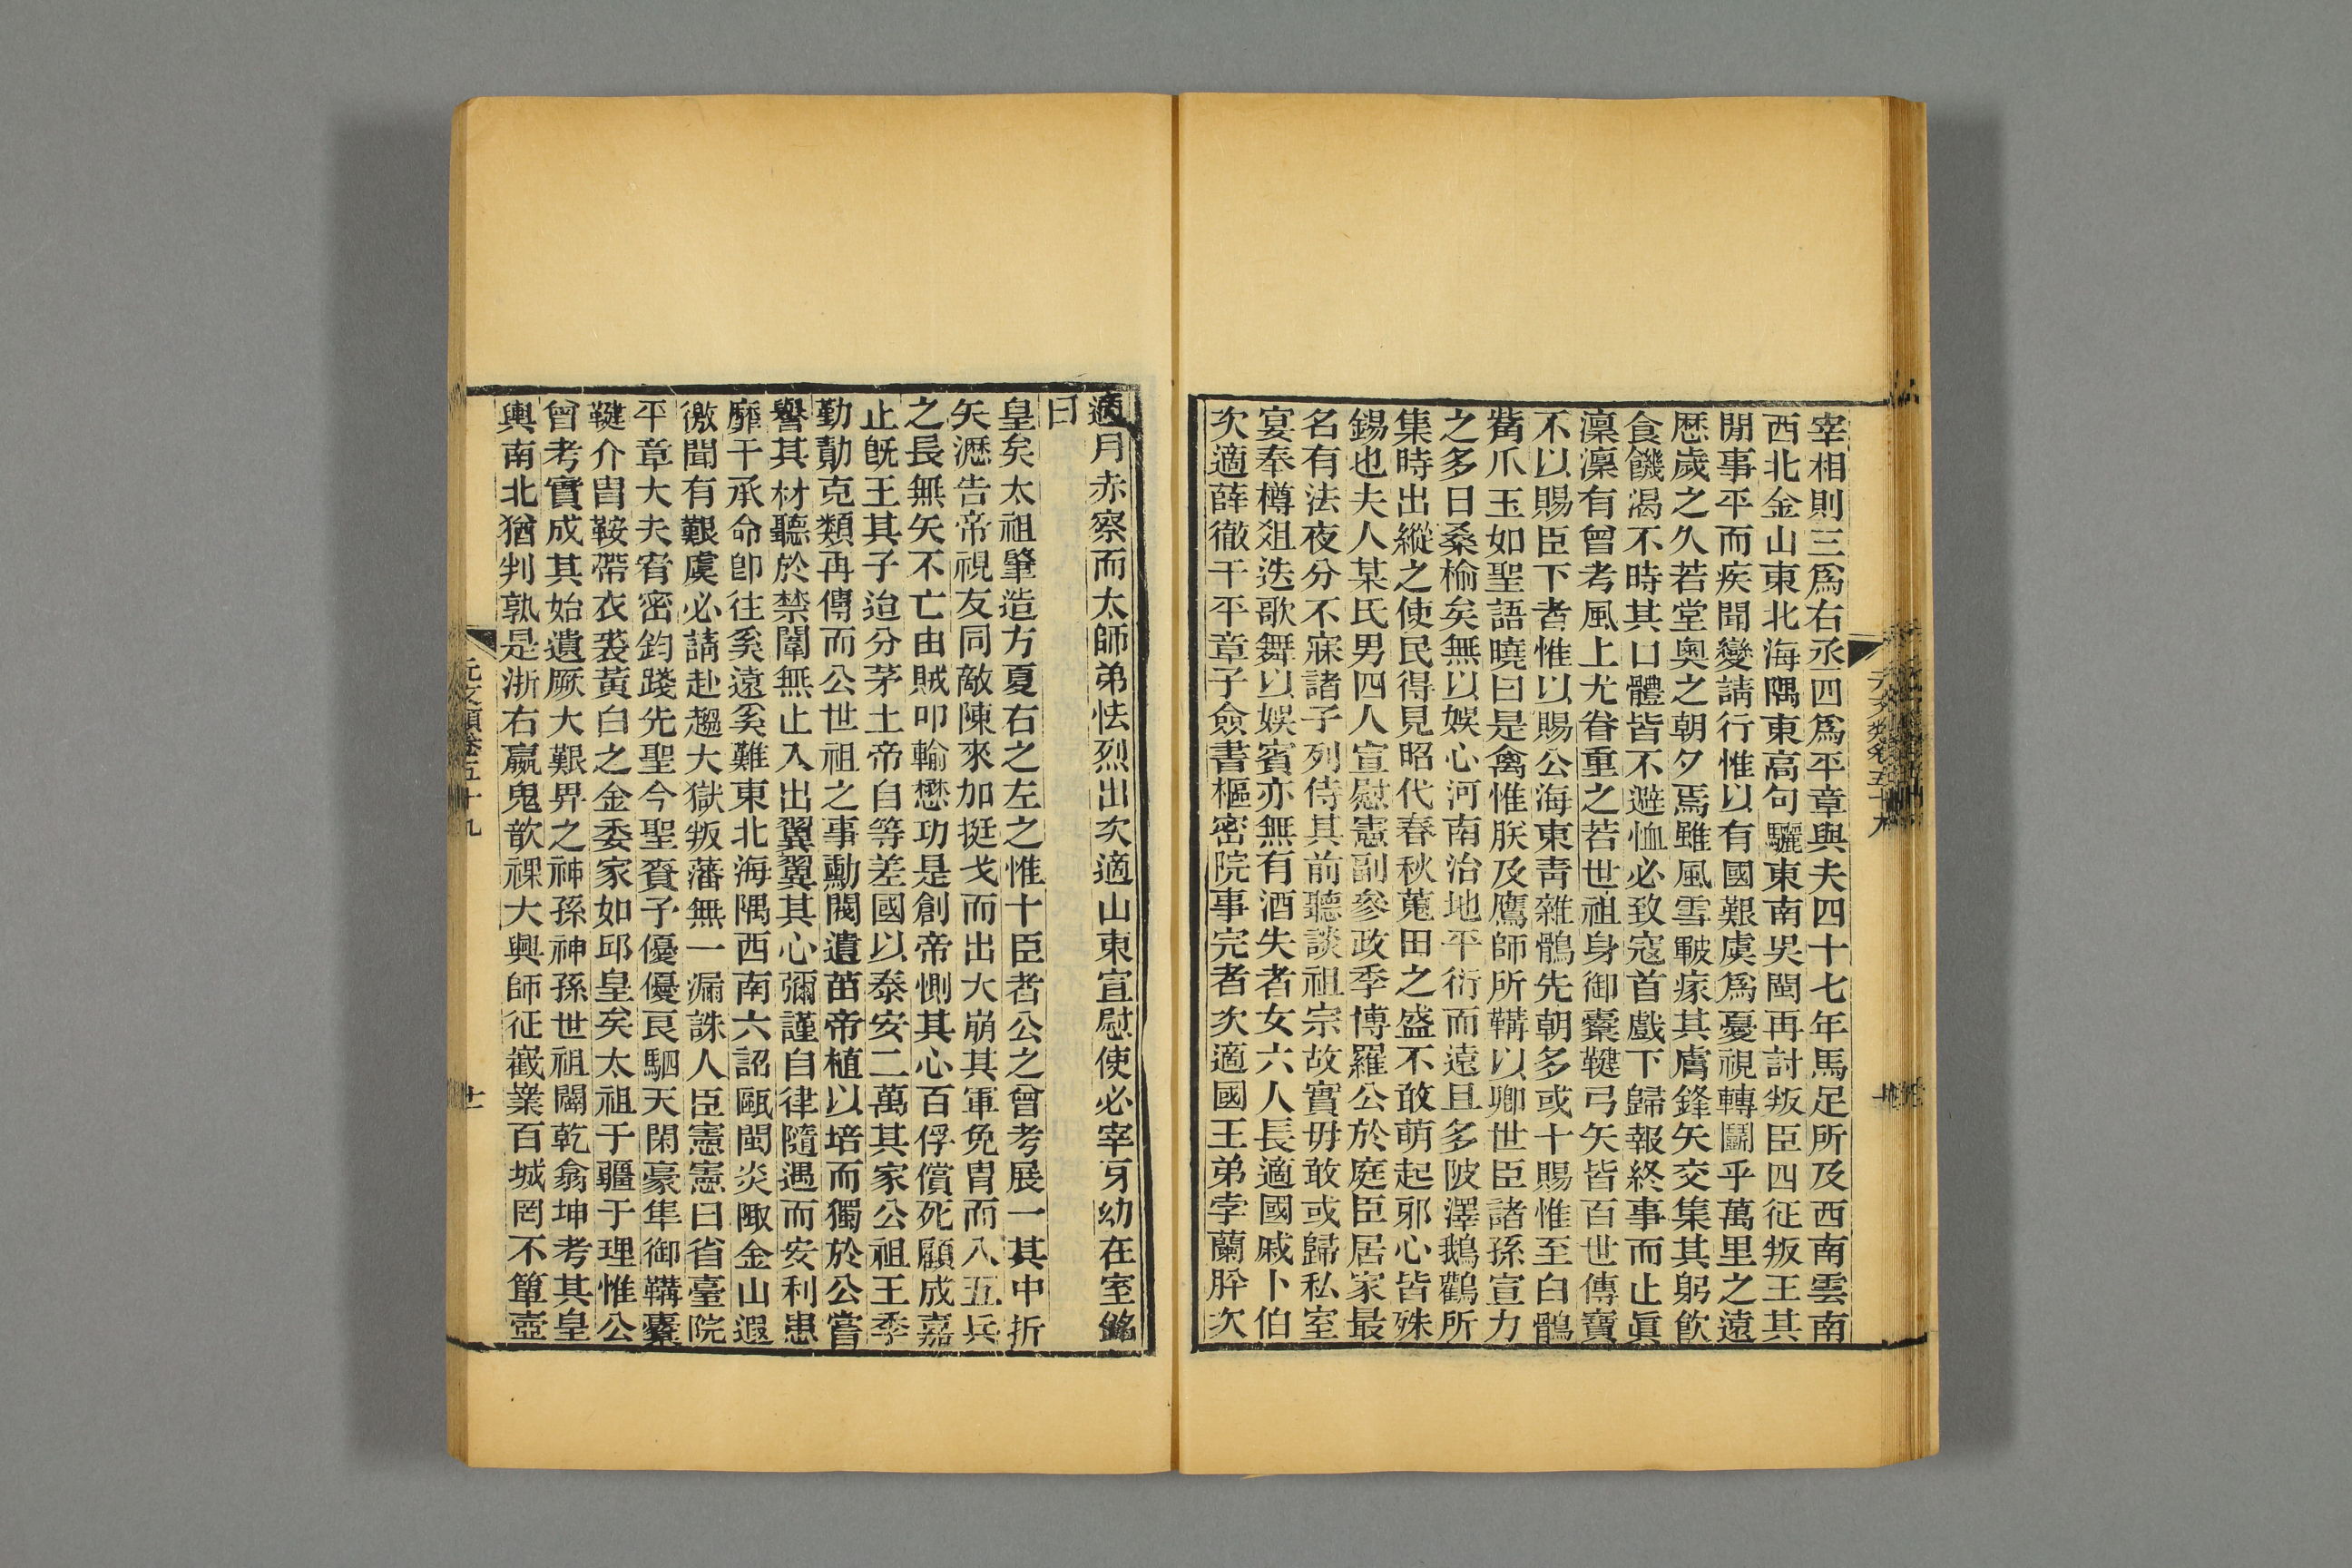 宰相則三爲右丞四爲平章與夫四十七年馬足所及西南雲南
西北金山東北海隅東高句驪東南吳閩再討叛臣四征叛王其
閒事平而疾聞變請行惟以有國艱虞爲憂視轉鬭乎萬里之遠
歷歲之久若堂奧之朝夕焉雖風雪皸瘃其膚鋒矢交集其躬飮
食饑渴不時其口體皆不避恤必致寇首戲下歸報終事而止眞
凜凜有曾考風上尤眷重之若世祖身御櫜鞬弓矢皆百世傳寶
不以賜臣下者惟以賜公海東靑雜鶻先朝多或十賜惟至白鶻
觜爪玉如聖語曉曰是禽惟朕及鷹師所鞲以卿世臣諸孫宣力
之多日桑楡矣無以娛心河南治地平衍而遠且多陂澤鵝鸛所
集時出縱之使民得見昭代春秋蒐田之盛不敢萌起邪心皆殊
錫也夫人某氏男四人宣慰憲副參政季博羅公於庭臣居家最
名有法夜分不寐諸子列侍其前聽談祖宗故實毋敢或歸私室
宴奉樽俎迭歌舞以娛賓亦無有酒失者女六人長適國戚卜伯
次適薛徹干平章子僉書樞密院事完者次適國王弟孛蘭肸次
適月赤察而太師弟怯烈出次適山東宣慰使必宰牙幼在室銘
曰
皇矣太祖肇造方夏右之左之惟十臣者公之曾考展一其中折
矢瀝告帝視友同敵陳來加挺戈而出大崩其軍免冑而入五兵
之長無矢不亡由賊叩輸懋功是創帝惻其心百俘償死願成嘉
止旣王其子迨分茅土帝自等差國以泰安二萬其家公祖王季
勤勩克類再傳而公世祖之事勳閥遺苗帝植以培而獨於公嘗
譽其材聽於禁闥無止入出翼翼其心彌謹自律隨遇而安利患
靡干承命卽往奚遠奚難東北海隅西南六詔甌閩炎陬金山遐
徼聞有艱虞必請赴趨大獄叛藩無一漏誅人臣憲憲曰省臺院
平章大夫宥密鈞踐先聖今聖賚予優優良駟天閑豪隼御鞲櫜
鞬介冑鞍帶衣裘黃白之金委家如邱皇矣太祖于疆于理惟公
曾考實成其始遺厥大艱畀之神孫神孫世祖闢乾翕坤考其皇
輿南北猶判孰是浙右嬴鬼歆祼大興師征嶻業百城罔不簞壺
元文類卷五十九